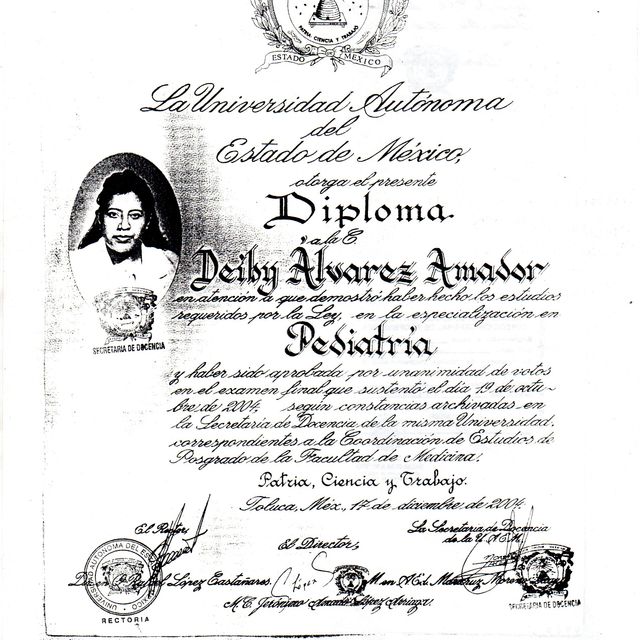 PATRIA, CIENCIA Y TRABAJO
ESTADO MÉXICO
La Universidad Autónoma
del
Estado de México,
otorga el presente
Diploma
a la C.
Deiby Alvarez Amador
en atención a que demostró haber hecho los estudios
requeridos por la Ley, en la especialización en
Pediatría
SECRETARIA DE DOCENCIA
y haber sido aprobada por unanimidad de votos
en el examen final que sustentó el día 19 de octu-
bre de 2004, según constancias archivadas en
la Secretaría de Docencia de la misma Universidad,
correspondientes a la Coordinación de Estudios de
Posgrado de la Facultad de Medicina.
Patria, Ciencia y Trabajo.
Toluca, Méx., 17 de diciembre de 2004.
El Rector,
El Director,
La Secretaria de Docencia
de la U.A.E.M.
López Castañares.
M. en A. Ed. Maricruz Moreno
M.C. Jerónimo Amado López Arriaga.
UNIVERSIDAD AUTONOMA DEL
RECTORIA
SECRETARIA DE DOCENCIA